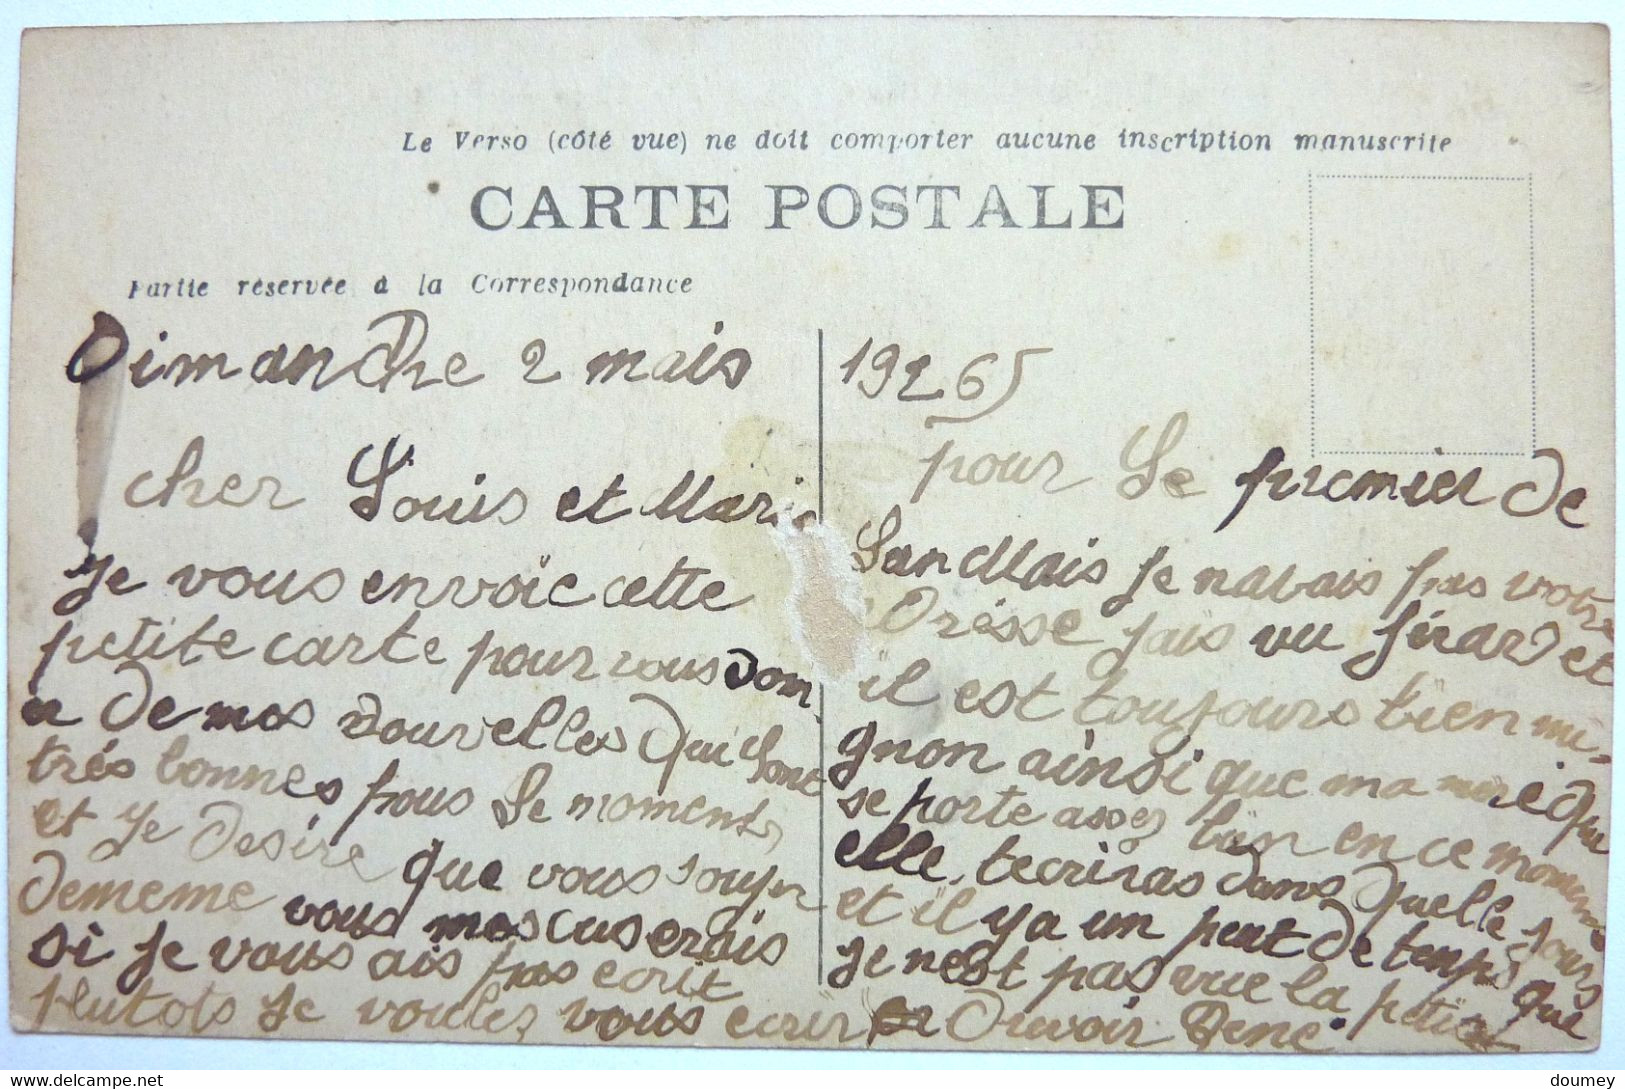 Le Verso (côté vue) ne doit comporter aucune inscription manuscrite
CARTE POSTALE
Partie réservée à la Correspondance
Dimanche 2 mais
cher Louis et Mari
Je vous envoie cette
petite carte pour vous donn
er de mes nouvelles qui sont
trés bonnes pous le moments
et Je desire que vous soyer
dememe vous mescuserais
si je vous ais pas ecrit
plutots je voulez vous ecrir
1926
pour Le premier de
Lan Mais je navais pas votre
adrésse jais vu girard et
il est toujours bien mi-
gnon ainsi que ma mere qui
se porte assez bien en ce moment
elle tecriras dans quelle jours
et il y a un peut de temps que
je nest pas vue la petite
Ouvoir René
delcampe.net
doumey